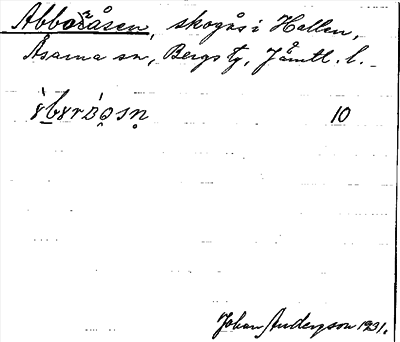 Abboråsen, skogås i Hallen,
Åsarna sn, Bergs tg, Jämtl. l.
10
Johan Anderzson 1931.